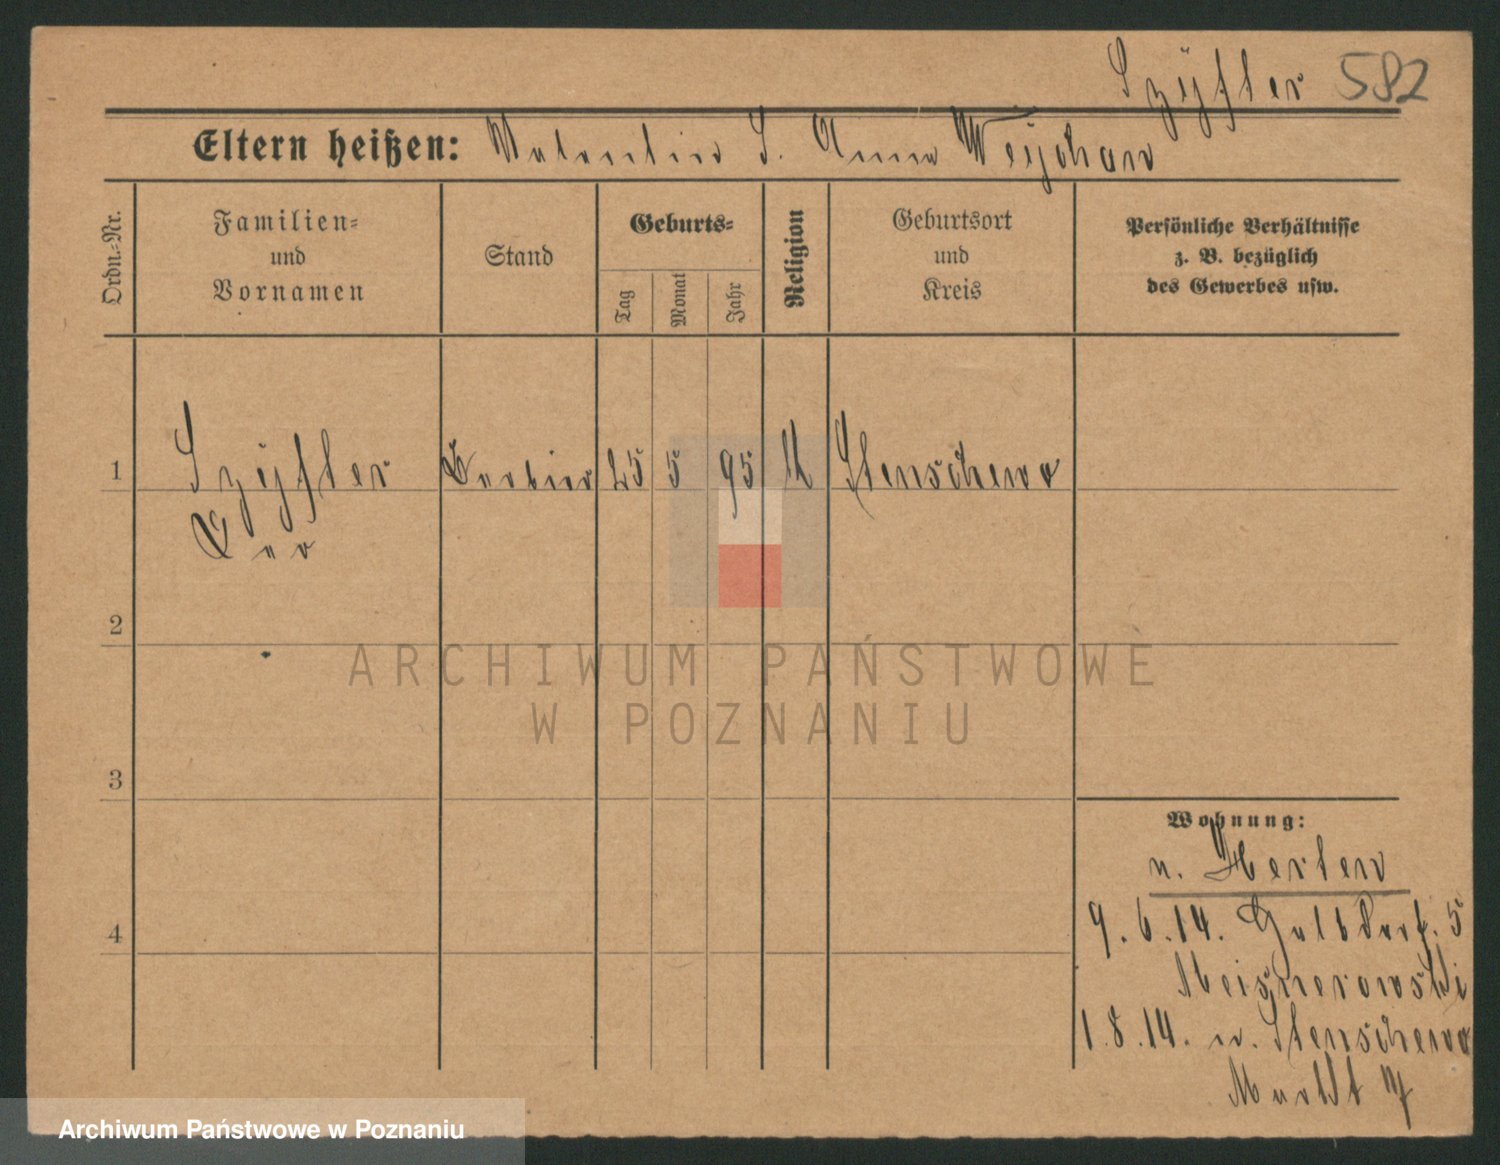 Szyfter 582
Eltern heißen: Valentin S. Anna Weychan
Ordn.-Nr.
Familien-
und
Vornamen
Stand
Geburts-
Tag
Monat
Jahr
Religion
Geburtsort
und
Kreis
Persönliche Verhältnisse
z. B. bezüglich
des Gewerbes usw.
1 Szyfter Barbier 25 5 95 k Stenschewo
2
3
4
Wohnung:
n. Xerten
9.6.14. Halbdorf. 5
1.8.14. n. Stenschewo
Markt 7
ARCHIWUM PAŃSTWOWE
W POZNANIU
Archiwum Państwowe w Poznaniu